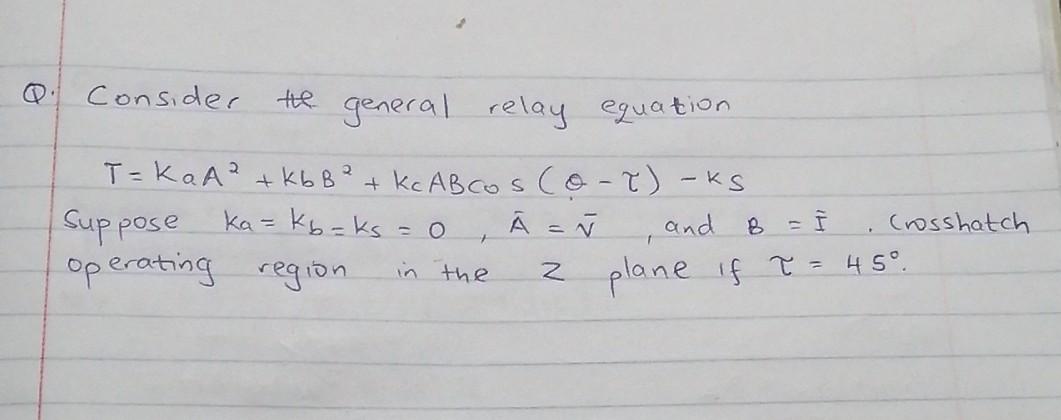 Q. Consider the general relay equation
T = KaA² + KbB² + KcABCos (θ - τ) - KS
Suppose Ka = Kb = Ks = 0 , Ā = V̄ , and B = Ī . Crosshatch
operating region in the Z plane if τ = 45°.